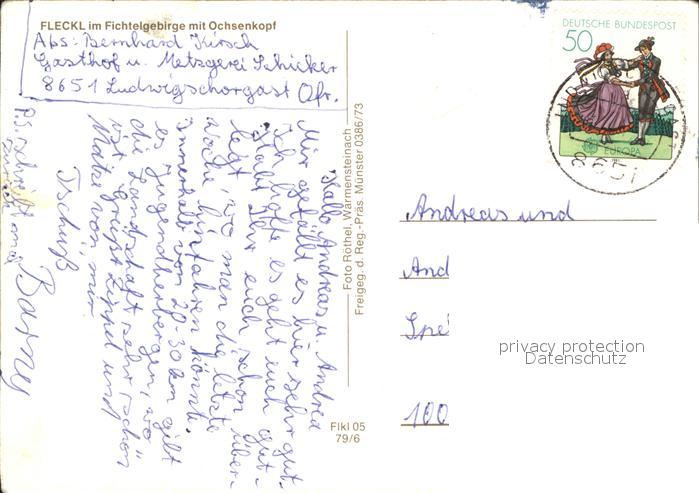 FLECKL im Fichtelgebirge mit Ochsenkopf
Abs: Bernhard Kirsch
Gasthof u. Metzgerei Schicker
8651 Ludwigschorgast Ofr.
Hallo Andreas u. Andrea
Mir gefällt es hier sehr gut.
Ich hoffe es geht euch gut.
Habt Ihr euch schon über-
legt, wo man die letzte
Woche hinfahren könnte.
Innerhalb von 20-30 km gibt
es Jugendherbergen, wo
die Landschaft sehr schön
ist. Grüßt Zippel und
Matze von mir
Tschüß
Barney
P.S. schreibt mal
zurück
Foto Röthel, Warmensteinach
Freigeg. d. Reg.-Präs. Münster 0386/73
Flkl 05
79/6
DEUTSCHE BUNDESPOST
50
EUROPA
8651
Andreas und
And
Spe
100
privacy protection
Datenschutz